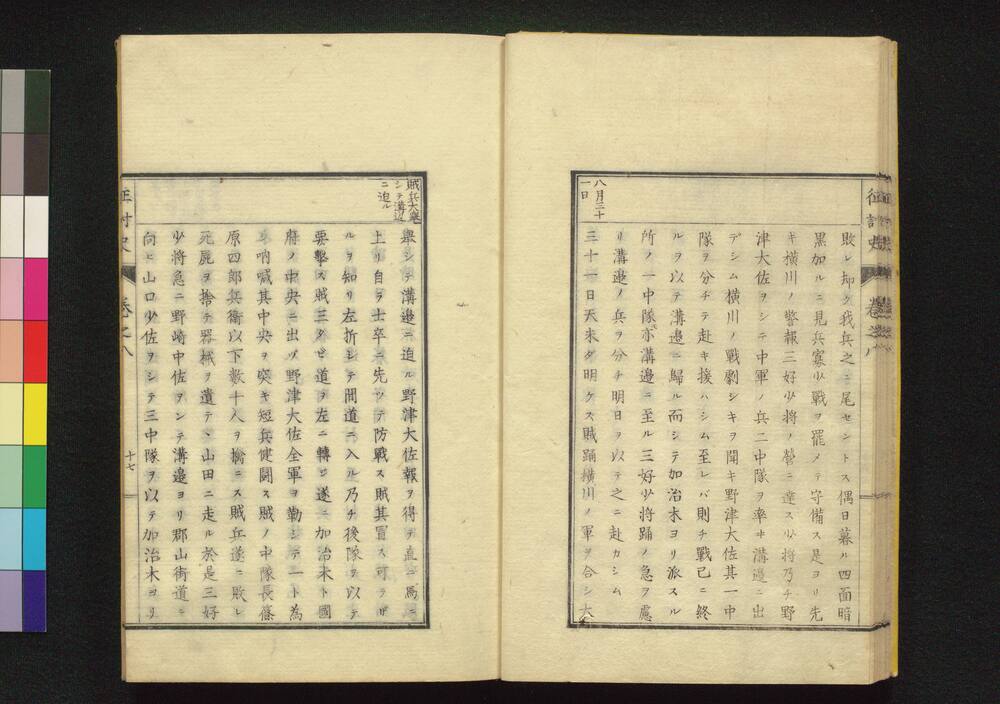 征討史 卷之八
敗レ却ク我兵之ニ尾セントス偶日暮ル四面暗
黒加ルニ見兵寡少戰ヲ罷メテ守備ス是ヨリ先
キ横川ノ警報三好少將ノ營ニ達ス少將乃チ野
津大佐ヲシテ中軍ノ兵二中隊ヲ率ヰ溝邊ニ出
デシム横川ノ戰劇シキヲ聞キ野津大佐其一中
隊ヲ分チテ赴キ援ハシム至レバ則チ戰已ニ終
ルヲ以テ溝邊ニ歸ル而シテ加治木ヨリ派スル
所ノ一中隊亦溝邊ニ至ル三好少將踊ノ急ヲ慮
リ溝邊ノ兵ヲ分チ明日ヲ以テ之ニ赴カシム
八月三十
一日
三十一日天未ダ明ケス賊踊横川ノ軍ヲ合シ大
賊兵大擧
シテ溝辺
ニ迫ル
擧シテ溝邊ニ迫ル野津大佐報ヲ得テ直ニ馬ニ
上リ自ラ士卒ニ先ツテ防戰ス賊其冒ス可ラザ
ルヲ知リ左折シテ間道ニ入ル乃チ後隊ヲ以テ
要擊ス賊三タビ道ヲ左ニ轉ジ遂ニ加治木ト國
府ノ中央ニ出ヅ野津大佐全軍ヲ勒シテ一ト為
シ吶喊其中央ヲ突キ短兵健鬪ス賊ノ中隊長篠
原四郎兵衞以下數十人ヲ擒ニス賊兵遂ニ敗レ
死屍ヲ捨テ器械ヲ遺テヽ山田ニ走ル於是三好
少將急ニ野崎中佐ヲシテ溝邊ヨリ郡山街道ニ
向ヒ山口少佐ヲシテ三中隊ヲ以テ加治木ヨリ
征討史 卷之八 十七